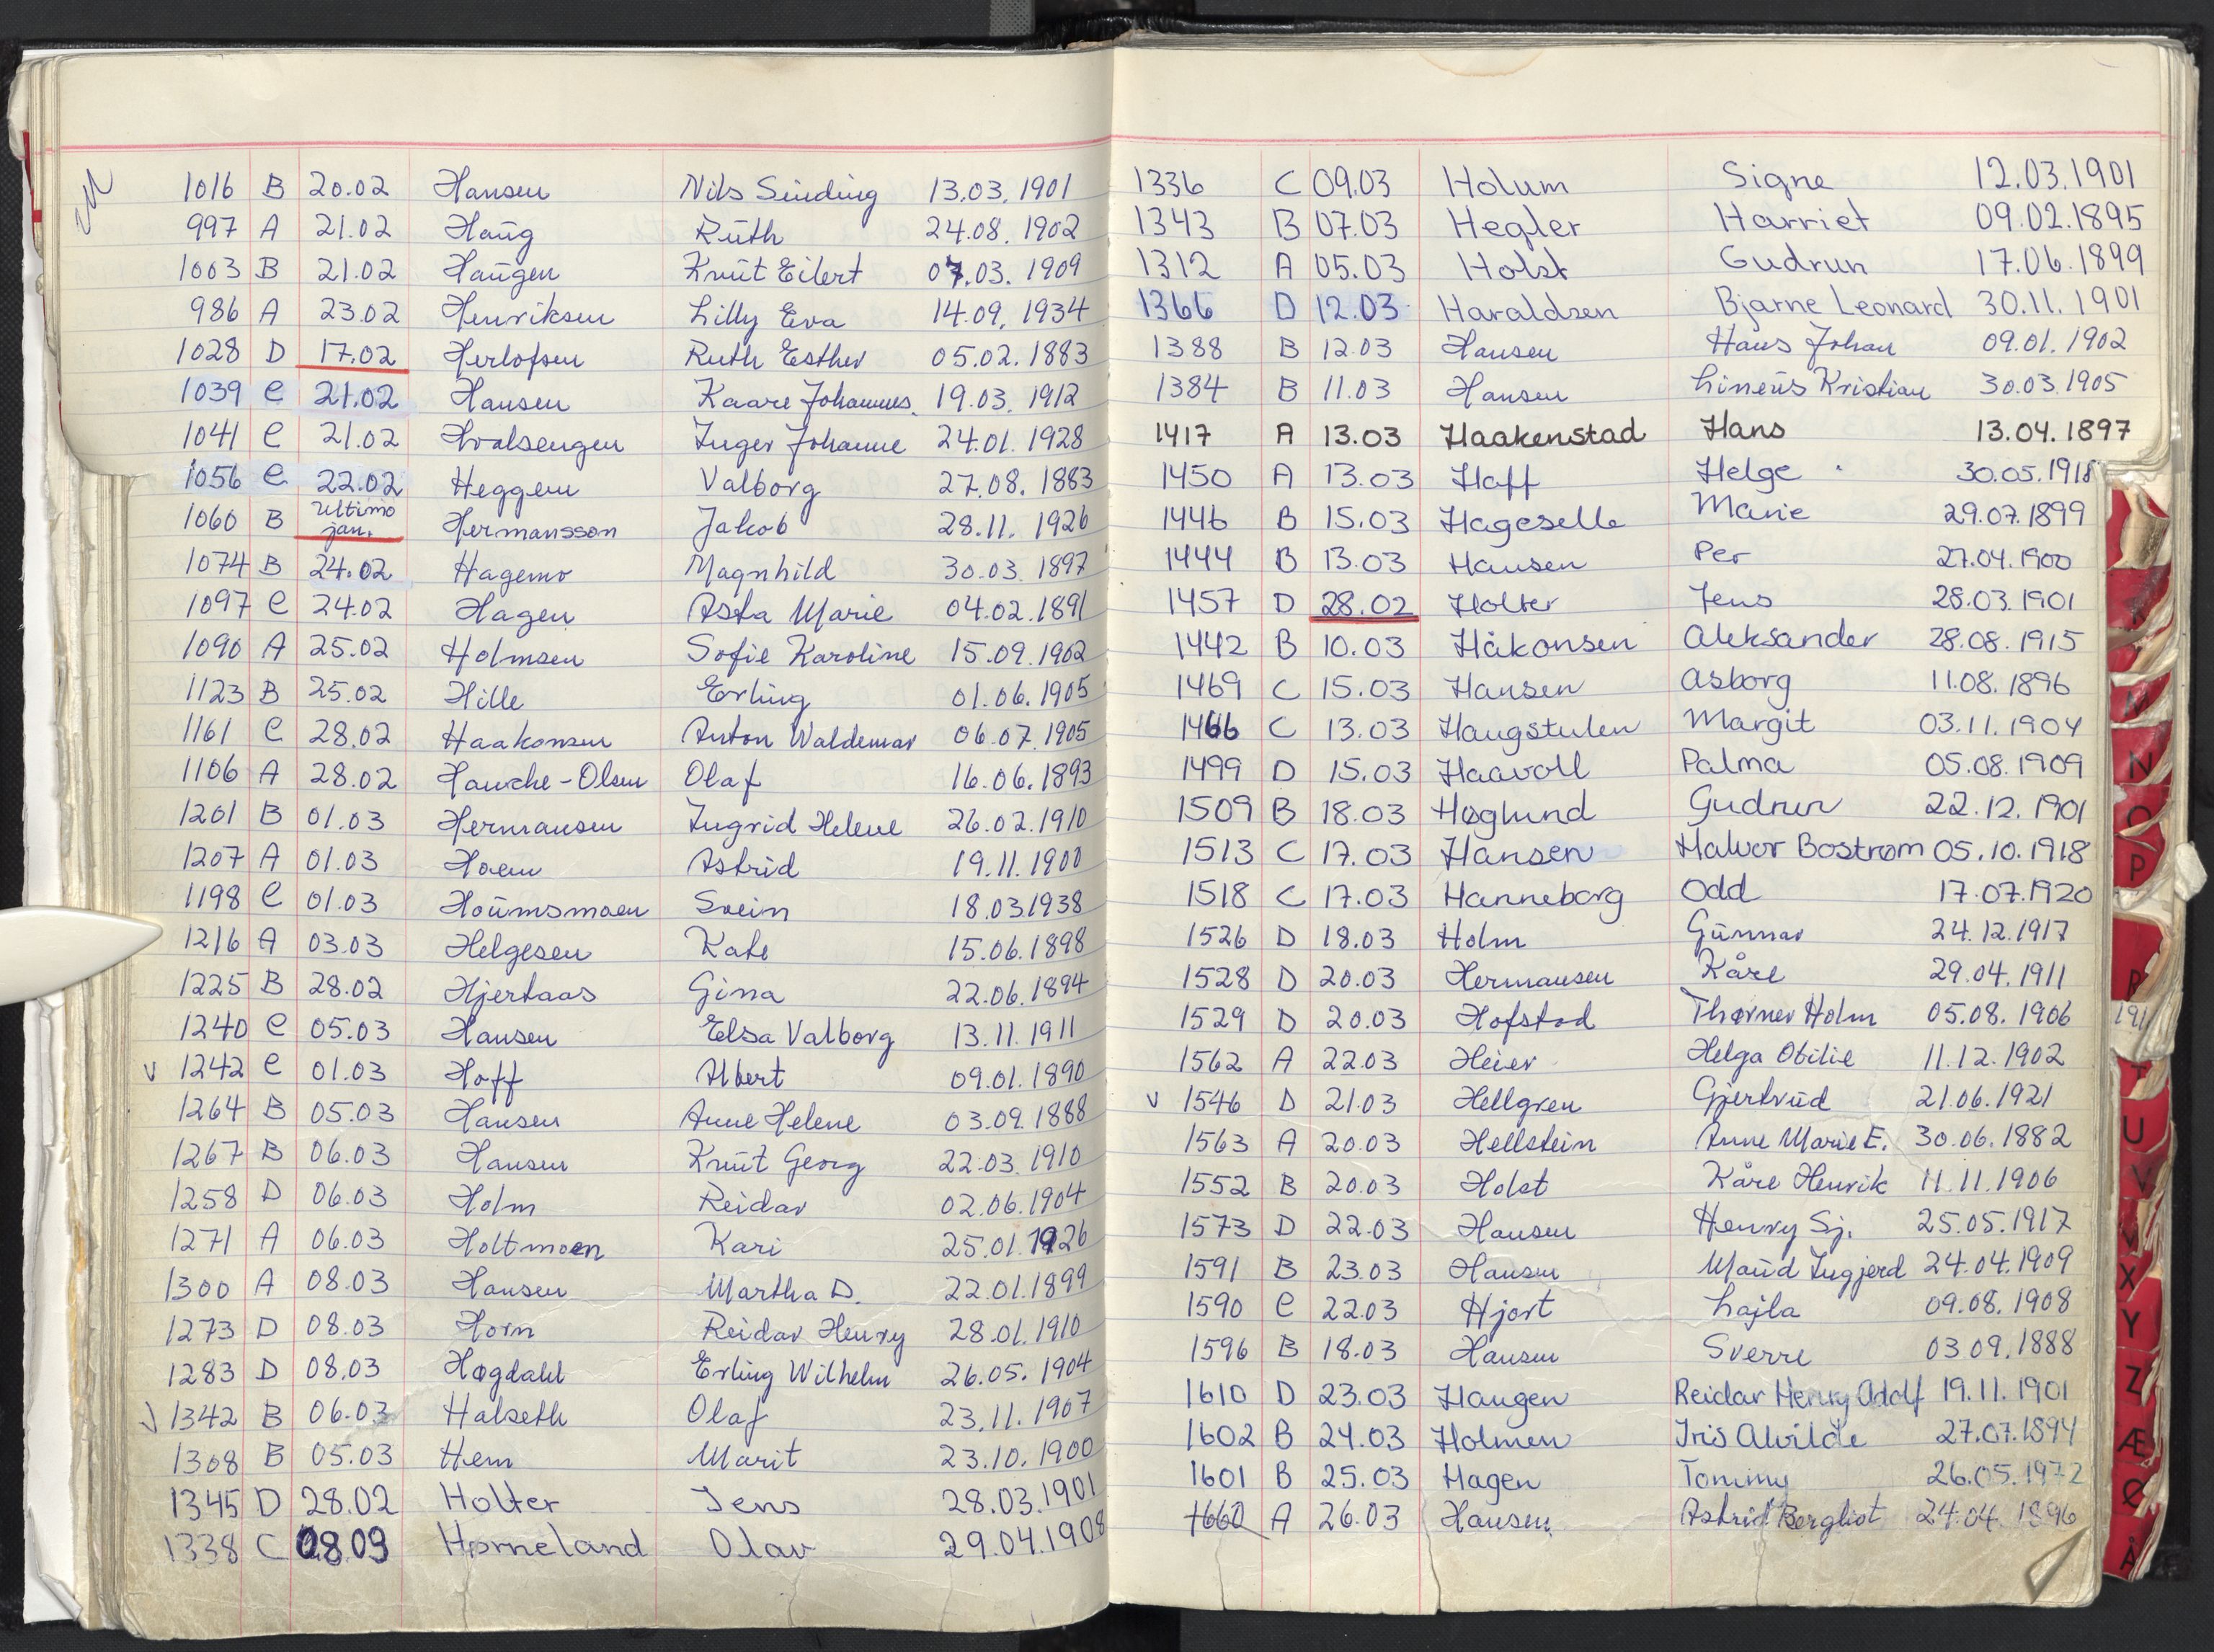 1016 B 20.02 Hansen Nils Sinding 13.03.1901
997 A 21.02 Haug Ruth 24.08.1902
1003 B 21.02 Haugen Knut Eilert 07.03.1909
986 A 23.02 Henriksen Lilly Eva 14.09.1934
1028 D 17.02 Herlofsen Ruth Esther 05.02.1883
1039 C 21.02 Hansen Kaare Johannes 19.03.1912
1041 C 21.02 Hvalsengen Inger Johanne 24.01.1928
1056 C 22.02 Heggem Valborg 27.08.1883
1060 B Ultimo jan. Hermansson Jakob 28.11.1926
1074 B 24.02 Hagemo Magnhild 30.03.1897
1097 C 24.02 Hagen Asta Marie 04.02.1891
1090 A 25.02 Holmsen Sofie Karoline 15.09.1902
1123 B 25.02 Hille Erling 01.06.1905
1161 C 28.02 Haakonsen Anton Waldemar 06.07.1905
1106 A 28.02 Hauche-Olsen Olaf 16.06.1893
1201 B 01.03 Hermansen Ingrid Helene 26.02.1910
1207 A 01.03 Hoem Astrid 19.11.1900
1198 C 01.03 Houmsmoen Svein 18.03.1938
1216 A 03.03 Helgesen Kate 15.06.1898
1225 B 28.02 Hjertaas Gina 22.06.1894
1240 C 05.03 Hansen Elsa Valborg 13.11.1911
v 1242 C 01.03 Hoff Albert 09.01.1890
1264 B 05.03 Hansen Anne Helene 03.09.1888
1267 B 06.03 Hansen Knut Georg 22.03.1910
1258 D 06.03 Holm Reidar 02.06.1904
1271 A 06.03 Holtmoen Kari 25.01.1926
1300 A 08.03 Hansen Martha D. 22.01.1899
1273 D 08.03 Horn Reidar Henry 28.01.1910
1283 D 08.03 Høgdahl Erling Wilhelm 26.05.1904
v 1342 B 06.03 Halseth Olaf 23.11.1907
1308 B 05.03 Hem Marit 23.10.1900
1345 D 28.02 Holter Jens 28.03.1901
1338 C 08.03 Hørneland Olav 29.04.1908
1336 C 09.03 Holum Signe 12.03.1901
1343 B 07.03 Hegler Harriet 09.02.1895
1312 A 05.03 Holst Gudrun 17.06.1899
1366 D 12.03 Haraldsen Bjarne Leonard 30.11.1901
1388 B 12.03 Hansen Hans Johan 09.01.1902
1384 B 11.03 Hansen Lineus Kristian 30.03.1905
1417 A 13.03 Haakenstad Hans 13.04.1897
1450 A 13.03 Hoff Helge 30.05.1918
1446 B 15.03 Hageselle Marie 29.07.1899
1444 B 13.03 Hansen Per 27.04.1900
1457 D 28.02 Holter Jens 28.03.1901
1442 B 10.03 Håkonsen Aleksander 28.08.1915
1469 C 15.03 Hansen Asborg 11.08.1896
1466 C 13.03 Haugstulen Margit 03.11.1904
1499 D 15.03 Haavoll Palma 05.08.1909
1509 B 18.03 Høglund Gudrun 22.12.1901
1513 C 17.03 Hansen Halvor Bostrøm 05.10.1918
1518 C 17.03 Hanneborg Odd 17.07.1920
1526 D 18.03 Holm Gunnar 24.12.1917
1528 D 20.03 Hermansen Kåre 29.04.1911
1529 D 20.03 Hofstad Thorner Holm 05.08.1906
1562 A 22.03 Heier Helga Otilie 11.12.1902
v 1546 D 21.03 Hellgren Gjertrud 21.06.1921
1563 A 20.03 Hellstein Anne Marie E. 30.06.1882
1552 B 20.03 Holst Kåre Henrik 11.11.1906
1573 D 22.03 Hansen Henry Sj. 25.05.1917
1591 B 23.03 Hansen Maud Ingjerd 24.04.1909
1590 C 22.03 Hjort Lajla 09.08.1908
1596 B 18.03 Hansen Sverre 03.09.1888
1610 D 23.03 Haugen Reidar Henry Adolf 19.11.1901
1602 B 24.03 Holmen Iris Alvilde 27.07.1894
1601 B 25.03 Hagen Tommy 26.05.1972
1660 A 26.03 Hansen Astrid Bergliot 24.04.1896
M
N
O
P
R
191
T
U
V
W
X
Y
Z
Æ
Ø
Å